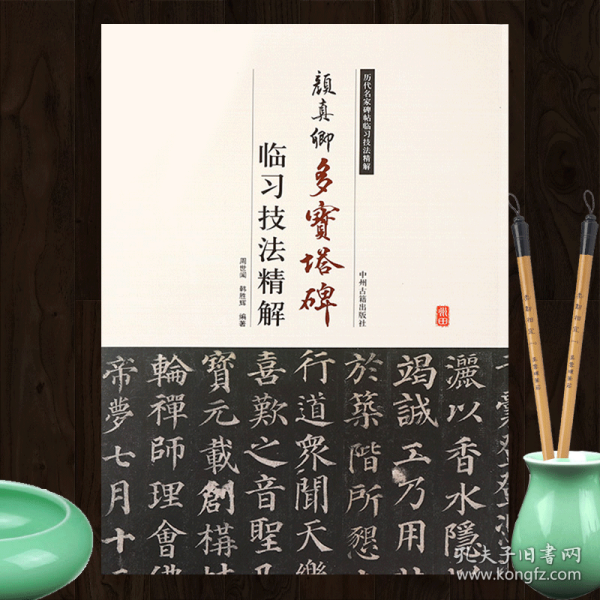 历代名家碑帖临习技法精解
颜真卿多寳塔碑
临习技法精解
周世闻 韩胜辉 编著
中州古籍出版社
灑以香水隱
竭誠工乃用
於築階所懇
行道眾聞天樂
喜歎之音聖
寳元載創構
輪禪師理會佛
帝夢七月十三
孔夫子旧书网
www.kongfz.com